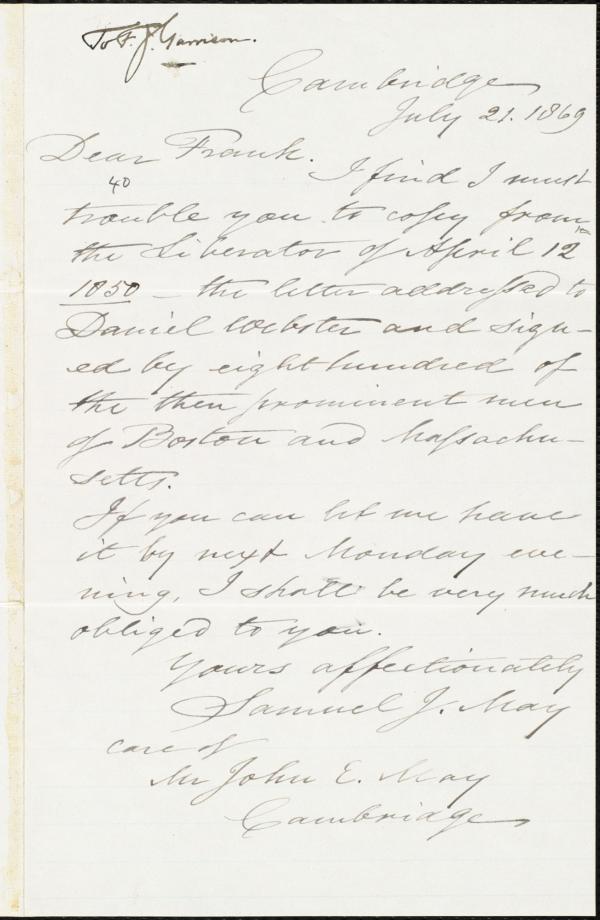 To F. J. Garrison.
Cambridge
July 21. 1869
Dear Frank.
I find I must
40
trouble you to copy from
the Liberator of April 12
1850 – the letter addressed to
Daniel Webster and sign-
ed by eight hundred of
the then prominent men
of Boston and Massachu-
setts.
If you can let me have
it by next Monday eve-
ning, I shall be very much
obliged to you.
Yours affectionately
Samuel J. May
care of
Mr John E. May
Cambridge